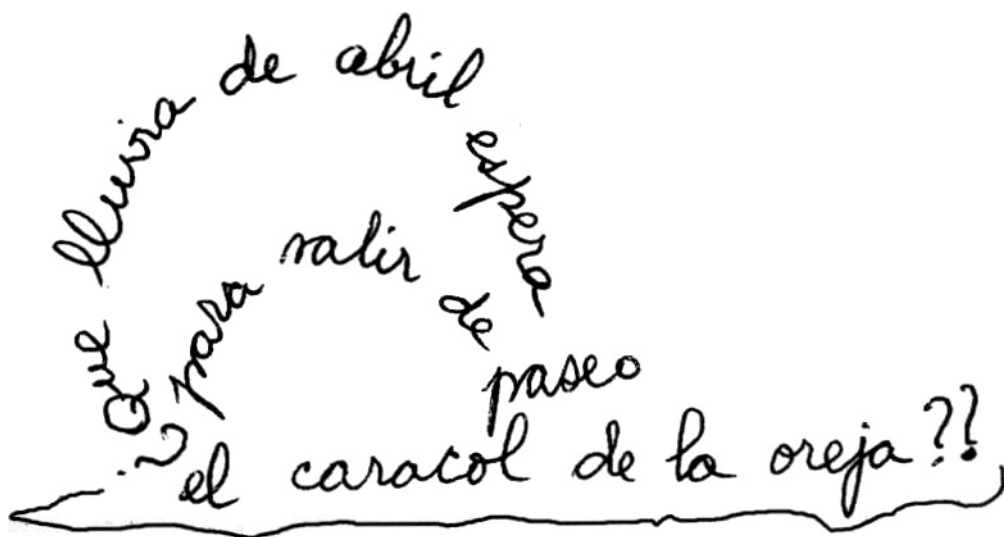 ¿Que lluvia de abril espera
para salir de paseo
el caracol de la oreja??